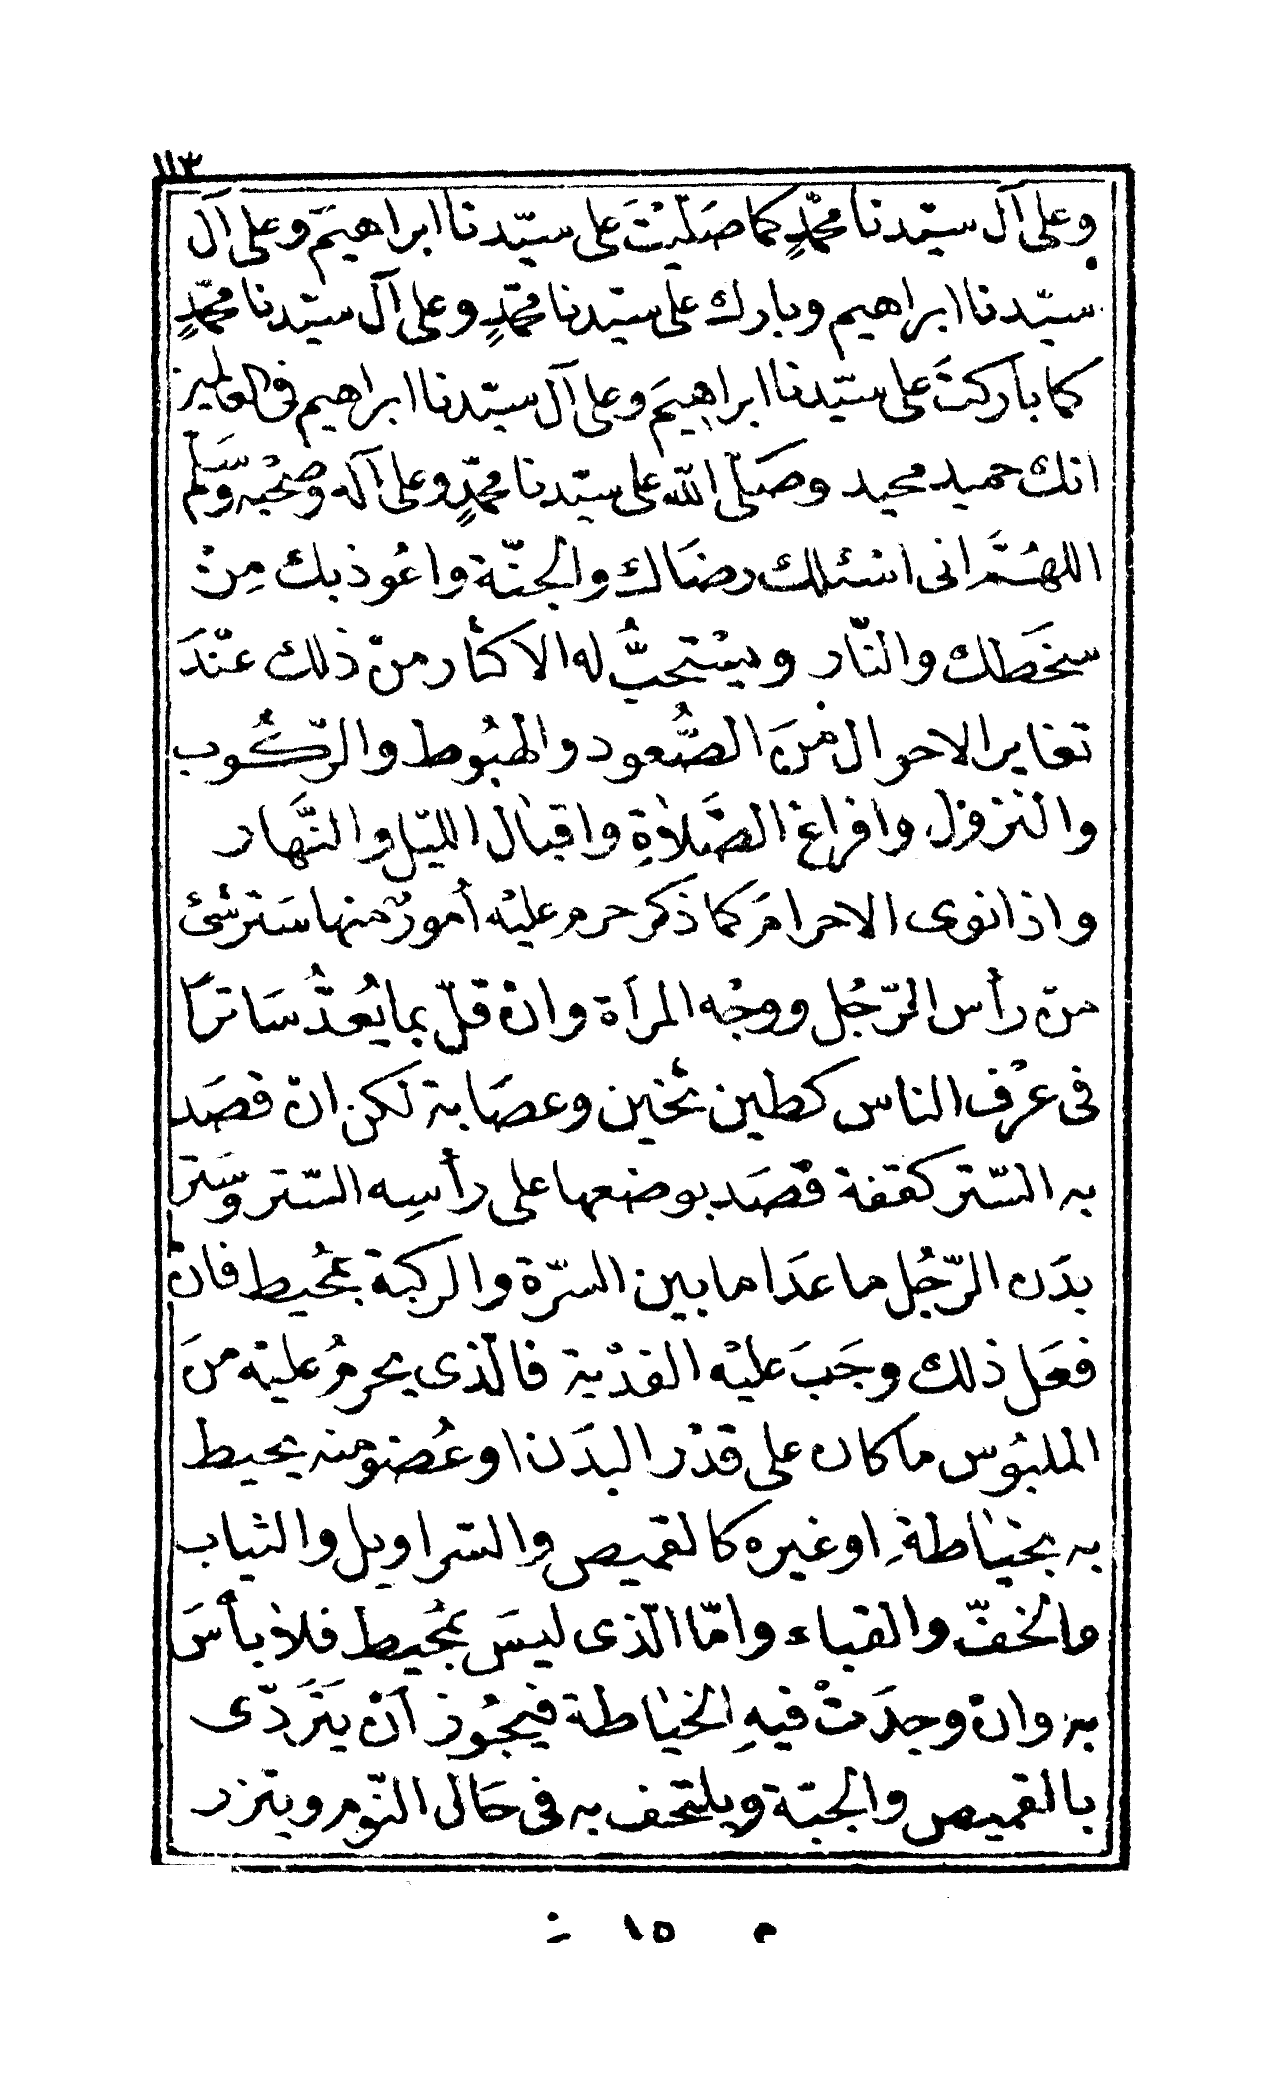 ١١٣
وعلى آل سيّدنا محمّدٍ كما صَلّيْتَ على سيّدنا ابراهيمَ وعلى آل
سيّدنا ابراهيم وبارك على سيّدنا محمّدٍ وعلى آل سيّدنا محمّدٍ
كما باركتَ على سيّدنا ابراهيمَ وعلى آل سيّدنا ابراهيم فى العالمين
انك حميد مجيد وصَلّى الله على سيّدنا محمّدٍ وعلى آله وصَحْبِه وسَلّم
اللهُمَّ انى اسْئلك رضَاك والجنّة واعُوذ بك مِنْ
سخَطك والنّار ويسْتحبُّ له الاكثار منْ ذلك عنْدَ
تغاير الاحوال منَ الصُّعود والهبُوط والرّكُوب
والنزول وافراغ الصَّلاةِ واقبال الليْل والنَّهار
واذا نوى الاحرامَ كما ذكر حرم عليْه أمورٌ منها سَتر شئ
منْ رأس الرّجُل ووجْه المرأة وانْ قلّ بما يُعَدُّ سَاترًا
فى عرْف الناس كطين ثخين وعصَابة لكن انْ قصَد
به السّتر كقفة قصَد بوضعها على رأسِه السّتر وسَتر
بدَن الرّجُل ما عدَا ما بين السرّة والركبة بمُحيط فانْ
فعَل ذلك وجَبَ عليْه الفدْية فالّذى يحرمُ عليْه منَ
الملبُوس ما كان على قدْر البدَن او عُضو منه يحيط
به بخيَاطةِ او غيره كالقميص والسّراويل والثياب
والخفّ والقباء وامّا الّذى ليسَ بمُحيط فلا بأسَ
به وانْ وجدَتْ فيهِ الخيَاطة فيجُوز أنْ يَتَردّى
بالقميص والجبّة ويلتحف به فى حَال النّوم ويتزر
م ١٥ ـ ن